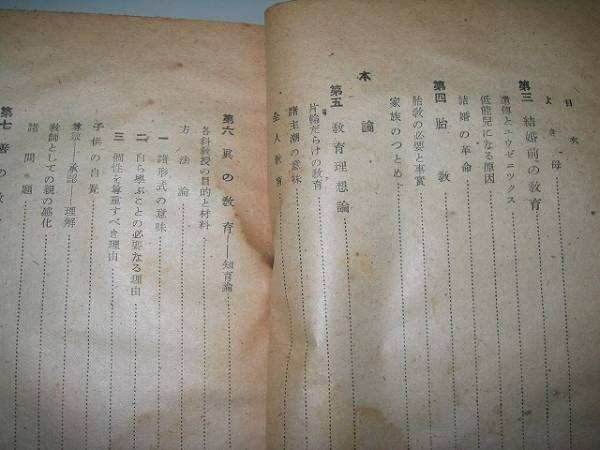 目次
よき母
第三 結婚前の教育
遺傳とユウゼニツクス
低能兒になる原因
結婚の革命
第四 胎教
胎教の必要と事實
家族のつとめ
本論
第五 教育理想論
片輪だらけの教育
諸主潮の意味
全人教育
第六 眞の教育——知育論
各科敎授の目的と材料
方法論
一 諸形式の意味
二 自ら學ぶことの必要なる理由
三 個性を尊重すべき理由
子供の自覺
尊敬——承認——理解
教師としての親の感化
諸問題
第七 善の教